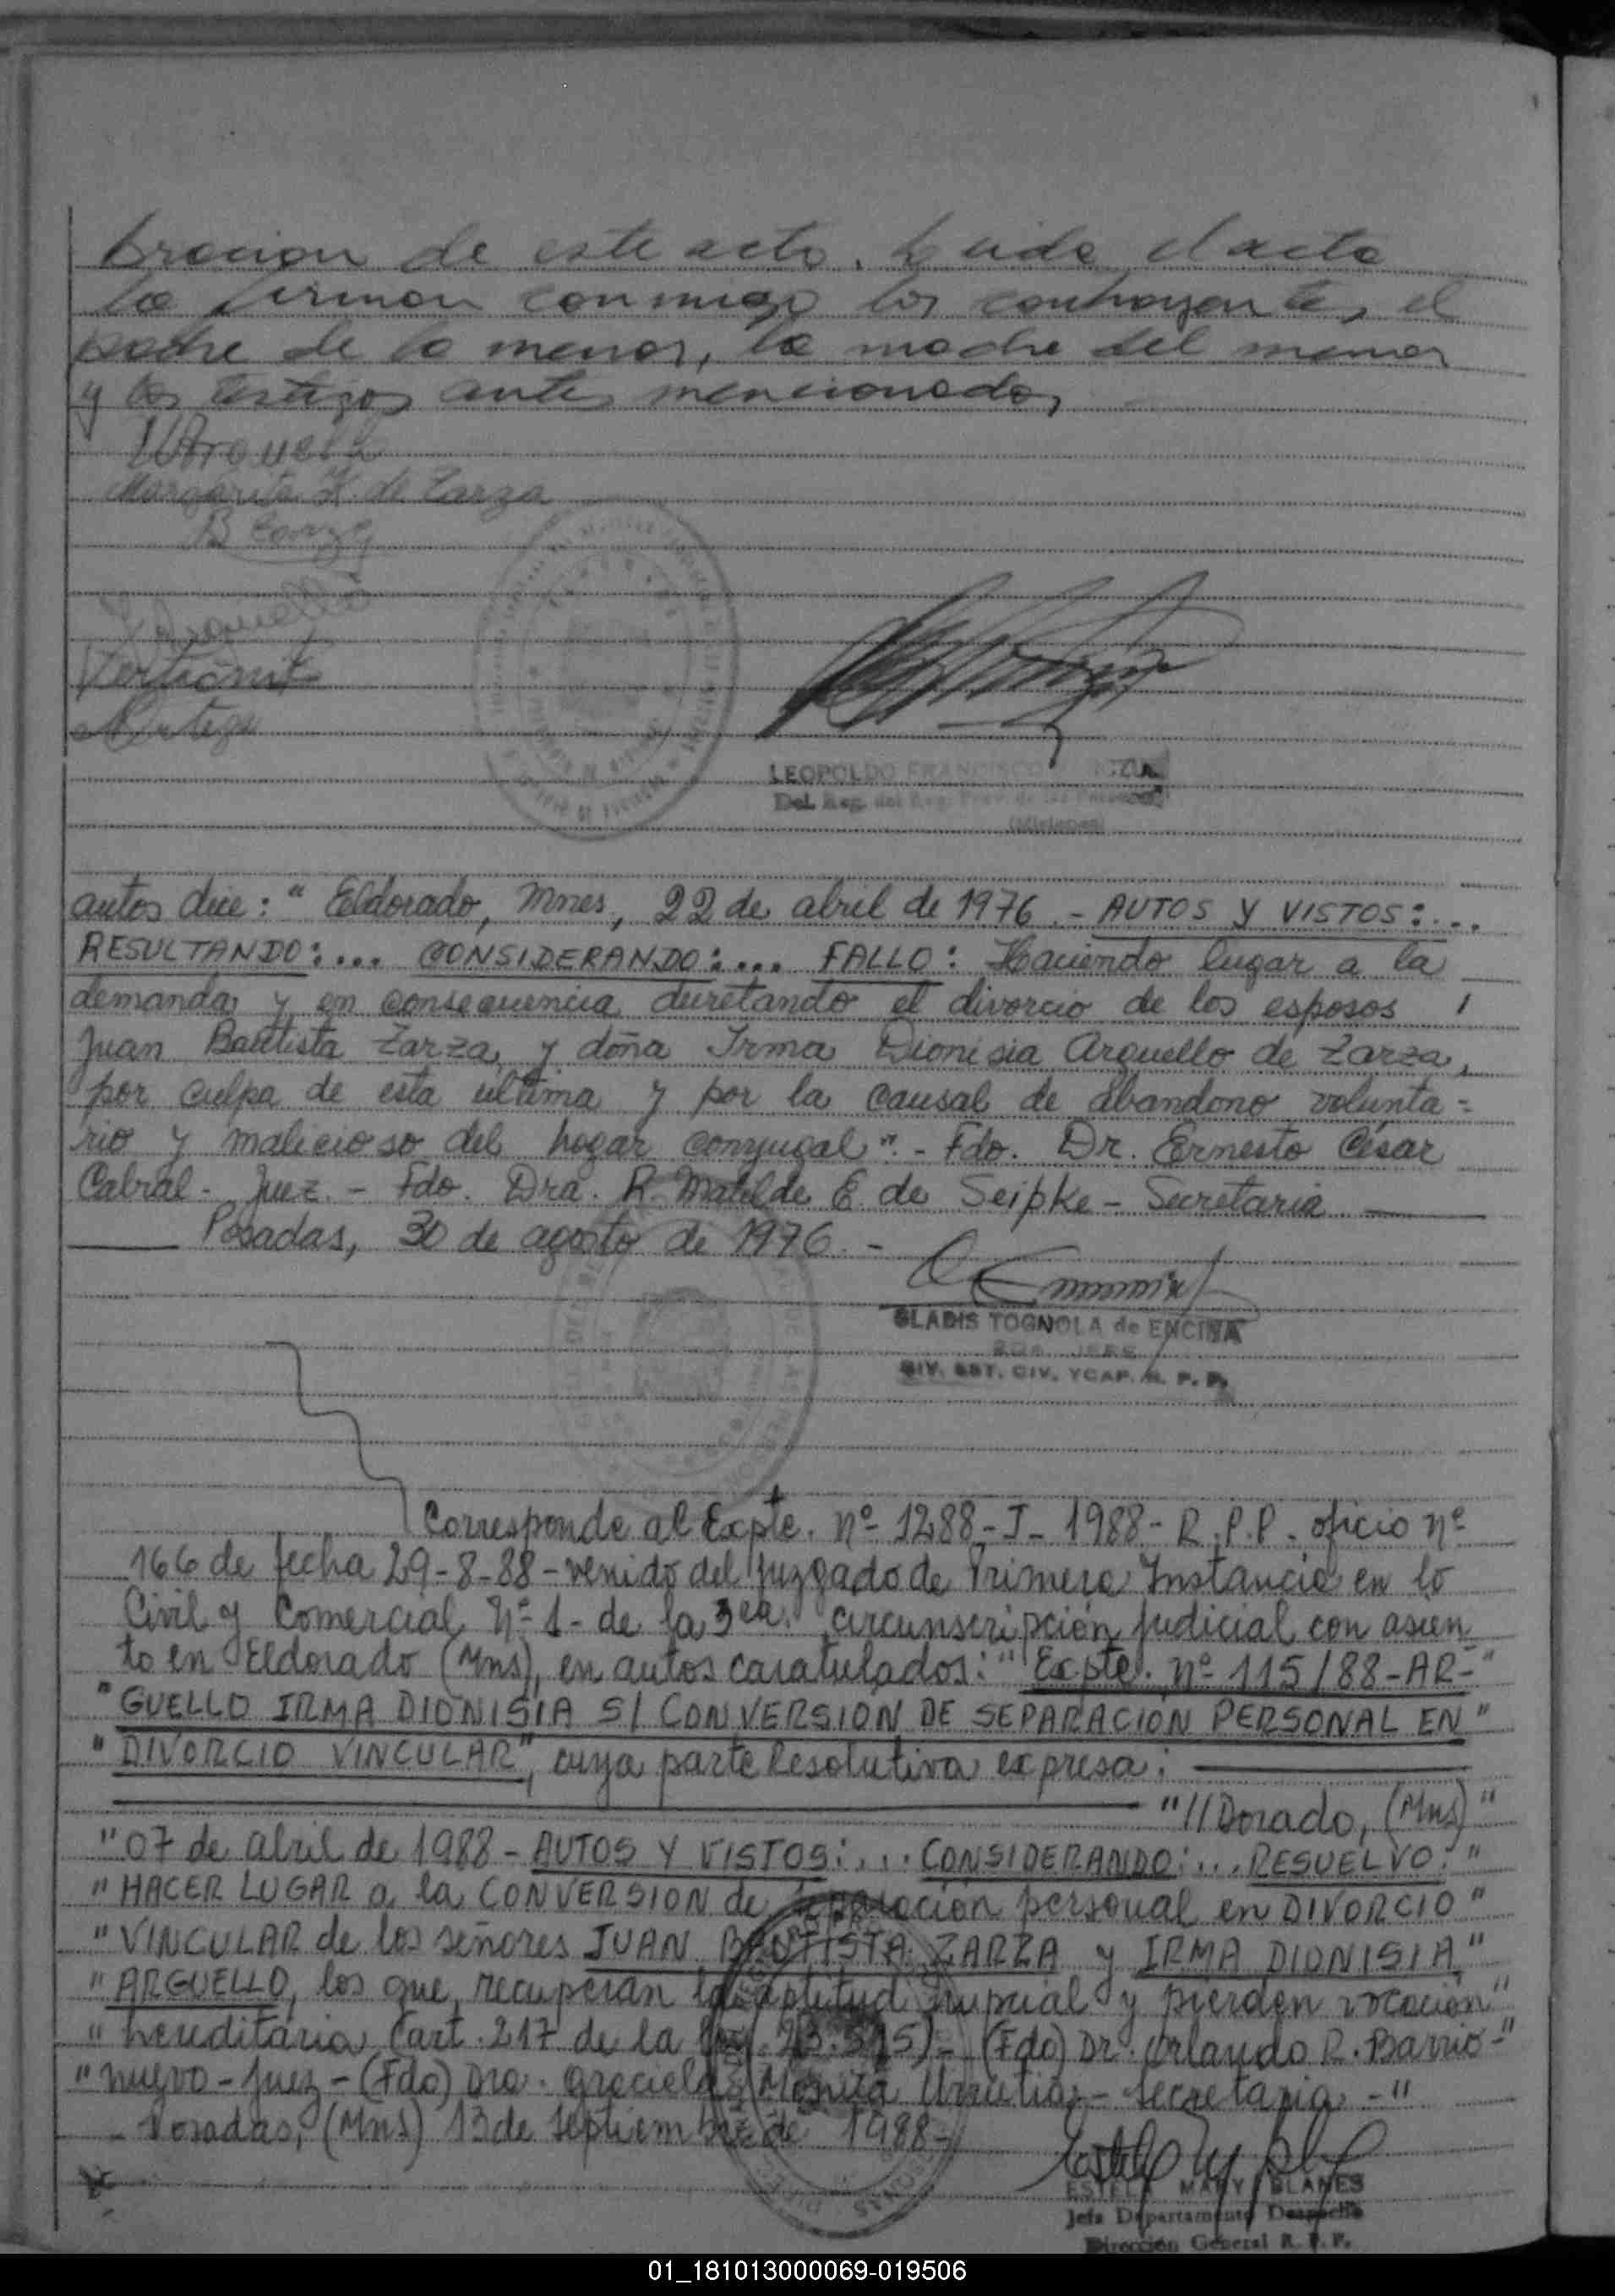 bracion de este acto. Leida el acta
la firman conmigo los contrayentes, el
padre de la menor, la madre del menor
y los testigos antes mencionados
Margarita K. de Zarza
B Zarza
LEOPOLDO FRANCISCO
Del. Reg. del Reg. Prov. de las Personas
(Misiones)
autos dice: " Eldorado, Mnes, 22 de abril de 1976. - AUTOS Y VISTOS:...
RESULTANDO:... CONSIDERANDO:... FALLO: Haciendo lugar a la
demanda y en consecuencia decretando el divorcio de los esposos
Juan Bautista Zarza y doña Irma Dionisia Arguello de Zarza,
por culpa de esta ultima y por la causal de abandono volunta=
rio y malicioso del hogar conyugal". - Fdo. Dr. Ernesto César
Cabral - Juez. - Fdo. Dra. R. Matilde E. de Seipke - Secretaria
Posadas, 30 de agosto de 1976. -
GLADIS TOGNOLA de ENCINA
2DA. JEFE
DIV. EST. CIV. YCAP. R. P. P.
Corresponde al Expte. nº 1288-I-1988- R.P.P. oficio nº
166 de fecha 29-8-88 - venido del Juzgado de Primera Instancia en lo
Civil y Comercial Nº 1- de la 3ea. circunscripción judicial con asien
to en Eldorado (Mns), en autos caratulados: "Expte. nº 115/88-AR-"
"GUELLO IRMA DIONISIA S/ CONVERSION DE SEPARACION PERSONAL EN"
"DIVORCIO VINCULAR", cuya parte Resolutiva expresa:
"//Dorado, (Mns)"
"07 de abril de 1988 - AUTOS Y VISTOS:... CONSIDERANDO:... RESUELVO:"
"HACER LUGAR a la CONVERSION de separación personal en DIVORCIO"
"VINCULAR de los señores JUAN BAUTISTA ZARZA y IRMA DIONISIA"
"ARGUELLO, los que recuperan la aptitud nupcial y pierden vocación"
"hereditaria (art. 217 de la ley. 23.515)- (Fdo) Dr. Orlando R. Barrio-"
"nuevo - Juez - (Fdo) Dra. Graciela Mónica Urrutia - Secretaria -"
- Posadas, (Mns) 13 de septiembre de 1988-
ESTELA MARY BLANES
Jefa Departamento Despacho
Dirección General R. P. P.
01_181013000069-019506